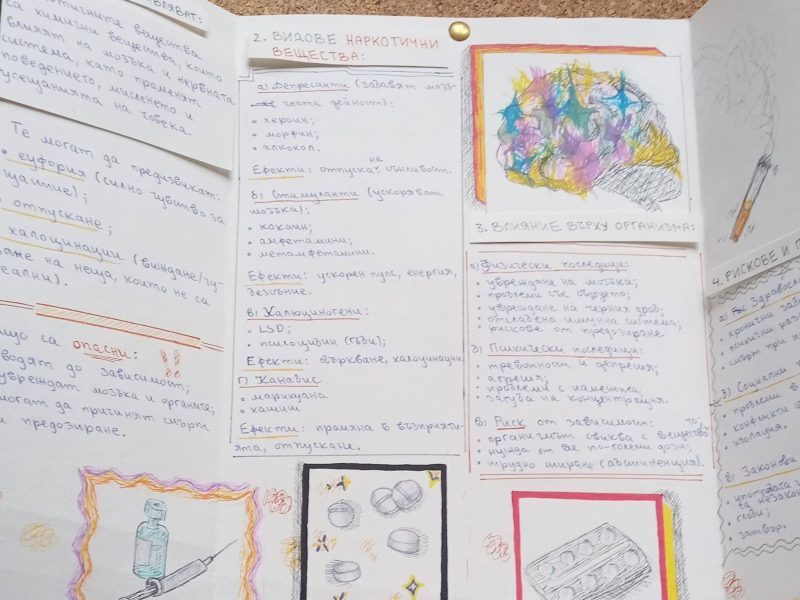 ВЛЯВАТ:
котичните вещества
са химични вещества, които
влияят на мозъка и нервната
система, като променят
поведението, мисленето и
усещанията на човека.
Те могат да предизвикат:
• еуфория (силно чувство за
щастие);
• отпускане;
халюцинации (виждане/чу-
ване на неща, които не са
реални).
що са опасни:
водят до зависимост;
увреждат мозъка и органите;
могат да причинят смърт
и предозиране.
2. ВИДОВЕ НАРКОТИЧНИ
ВЕЩЕСТВА:
а) Депресанти (забавят мозъ-
чната дейност):
• хероин;
• морфин;
• алкохол.
Ефекти: отпускане, сънливост.
б) Стимуланти (ускоряват
мозъка):
• кокаин;
• амфетамини;
• метамфетамини.
Ефекти: ускорен пулс, енергия,
безсъние.
в) Халюциногени:
• LSD;
• псилоцибин (гъби);
Ефекти: объркване, халюцинации.
г) Канабис
• марихуана
• хашиш
Ефекти: промяна в възприяти-
ята, отпускане.
3. ВЛИЯНИЕ ВЪРХУ ОРГАНИЗМА:
а) Физически последици:
• увреждане на мозъка;
• проблеми със сърцето;
• увреждане на черния дроб;
• отслабена имунна система;
• рискове от предозиране.
б) Психически последици:
• тревожност и депресия;
• агресия;
• проблеми с паметта;
• загуба на концентрация.
в) Риск от зависимост:
• организмът свиква с веществото
• нужда от все по-големи дози;
• трудно спиране (абстиненция).
4. РИСКОВЕ И П
а) Здравосл
• хронични заб
• психични раз
• смърт при п
б) Социални
• проблеми в
• конфликти
• изолация.
в) Законови
• употребата
та незако
• глоби;
• затвор.